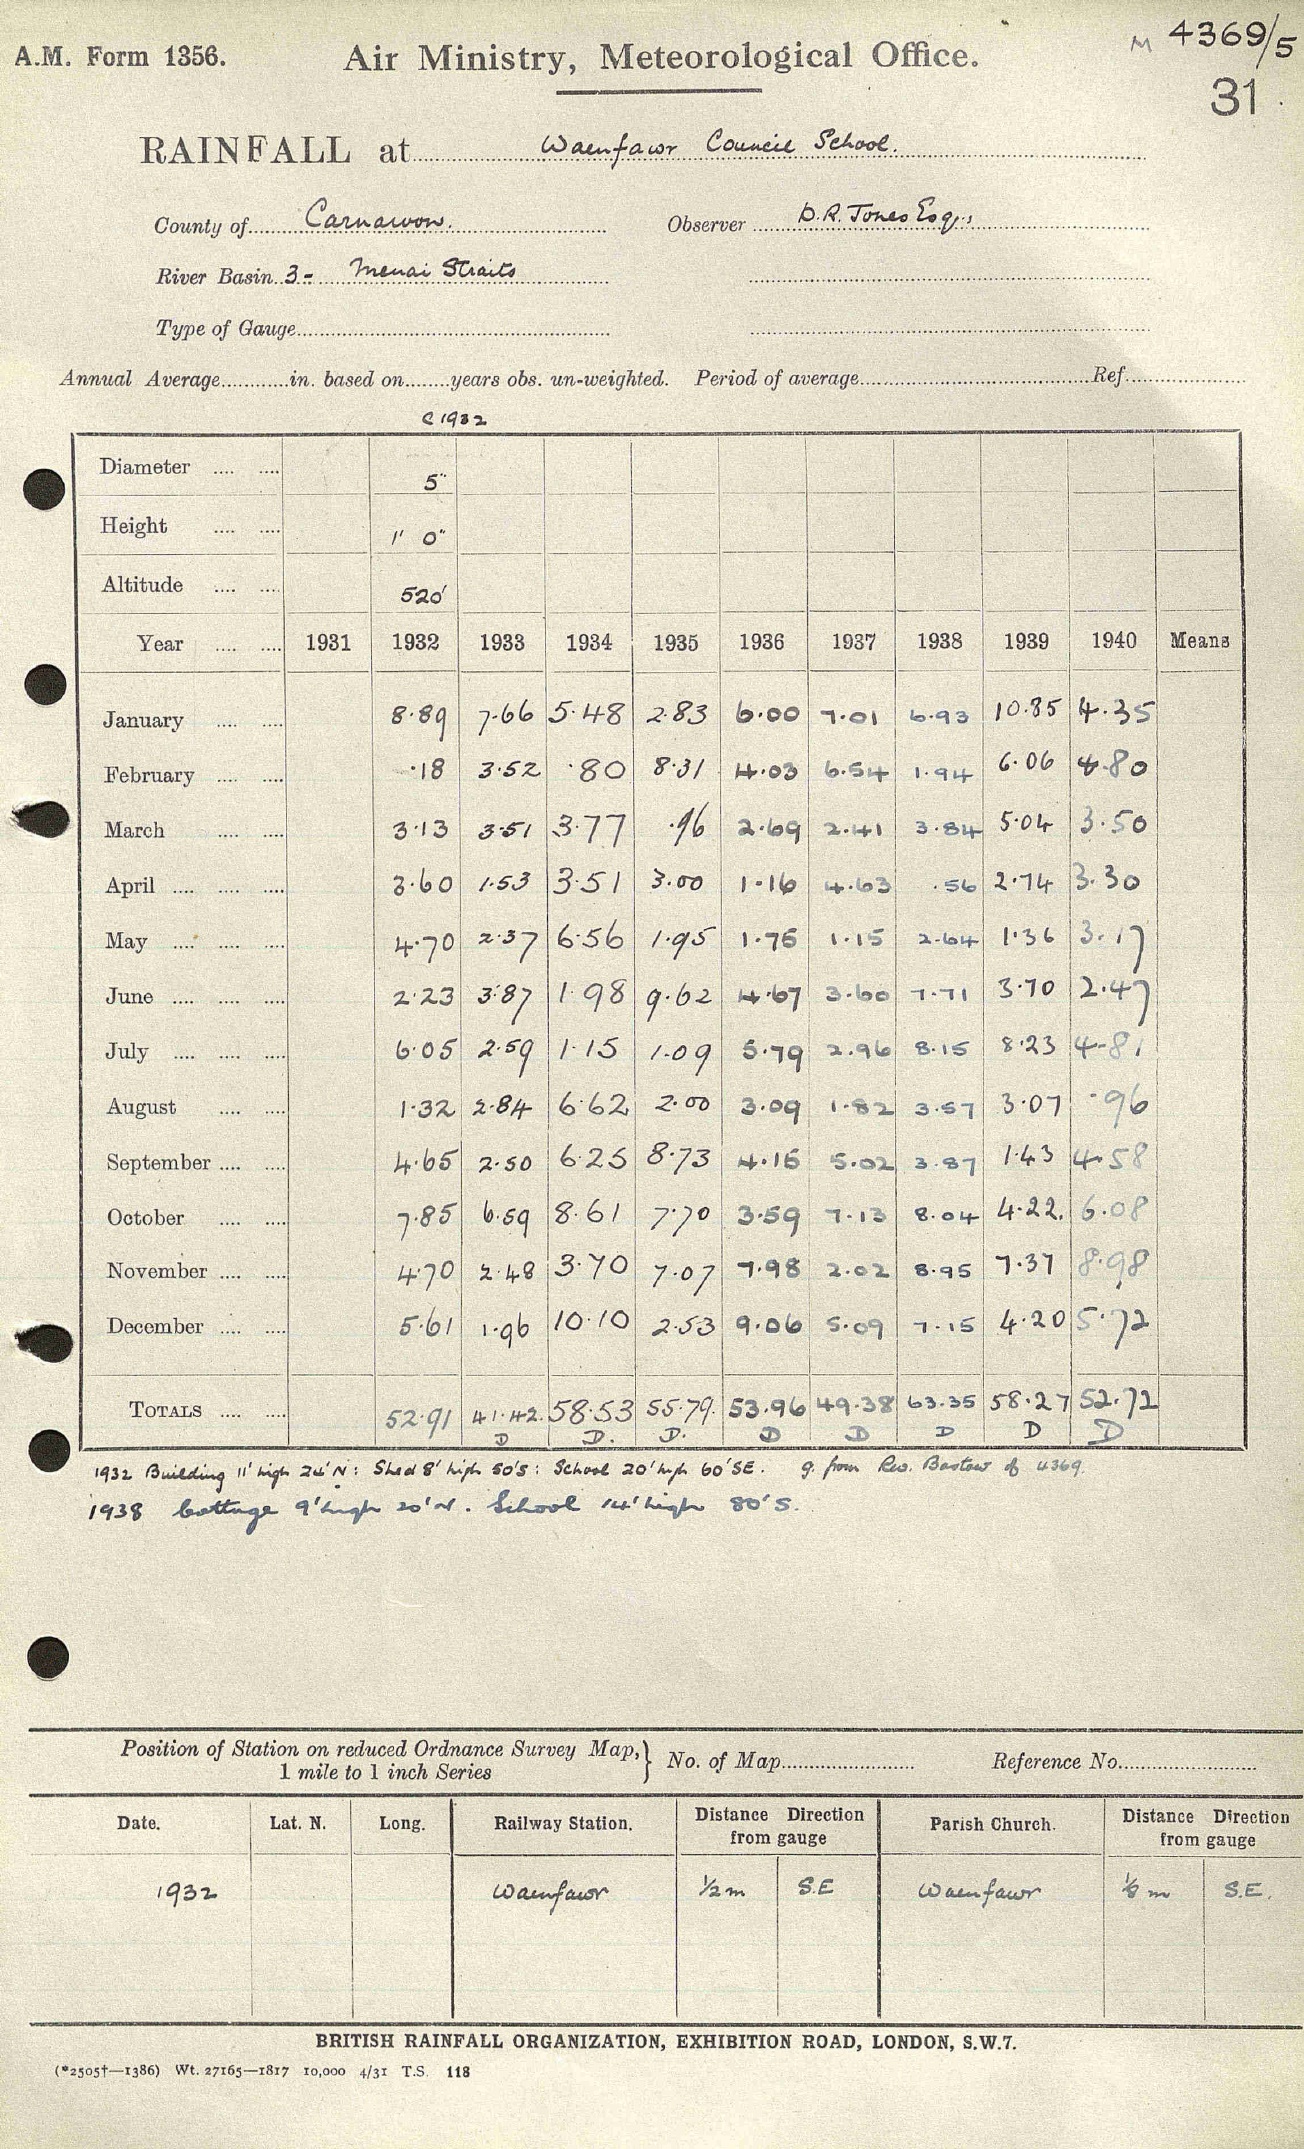 A.M. Form 1356.
Air Ministry, Meteorological Office.
M 4369/5
31
RAINFALL at Waenfawr Council School.
County of Carnarvon. Observer D.R. Jones Esq.,
River Basin 3- Menai Straits
Type of Gauge
Annual Average in. based on years obs. un-weighted. Period of average Ref.
C 1932
Diameter 5"
Height 1' 0"
Altitude 520'
Year 1931 1932 1933 1934 1935 1936 1937 1938 1939 1940 Means
January 8.89 7.66 5.48 2.83 6.00 7.01 6.93 10.85 4.35
February .18 3.52 .80 8.31 4.03 6.54 1.94 6.06 4.80
March 3.13 3.51 3.77 .96 2.69 2.41 3.84 5.04 3.50
April 3.60 1.53 3.51 3.00 1.16 4.63 .56 2.74 3.30
May 4.70 2.37 6.56 1.95 1.76 1.15 2.64 1.36 3.17
June 2.23 3.87 1.98 9.62 4.67 3.60 7.71 3.70 2.47
July 6.05 2.59 1.15 1.09 5.79 2.96 8.15 8.23 4.81
August 1.32 2.84 6.62 2.00 3.09 1.82 3.57 3.07 .96
September 4.65 2.50 6.25 8.73 4.15 5.02 3.87 1.43 4.58
October 7.85 6.59 8.61 7.70 3.59 7.13 8.04 4.22 6.08
November 4.70 2.48 3.70 7.07 7.98 2.02 8.95 7.37 8.98
December 5.61 1.96 10.10 2.53 9.06 5.09 7.15 4.20 5.72
TOTALS 52.91 41.42 58.53 55.79 53.96 49.38 63.35 58.27 52.72
D D. D. D D D D D
1932 Building 11' high 24' N: Shed 8' high 50' S: School 20' high 60' SE. g. from Rev. Bastow of 4369.
1938 Cottage 9' high 20' N. School 14' high 80' S.
Position of Station on reduced Ordnance Survey Map, 1 mile to 1 inch Series } No. of Map Reference No.
Date. Lat. N. Long. Railway Station. Distance Direction from gauge Parish Church. Distance Direction from gauge
1932 Waenfawr 1/2 m S.E Waenfawr 1/8 m S.E.
BRITISH RAINFALL ORGANIZATION, EXHIBITION ROAD, LONDON, S.W.7.
(*2505†—1386) Wt. 27165—1817 10,000 4/31 T.S. 118